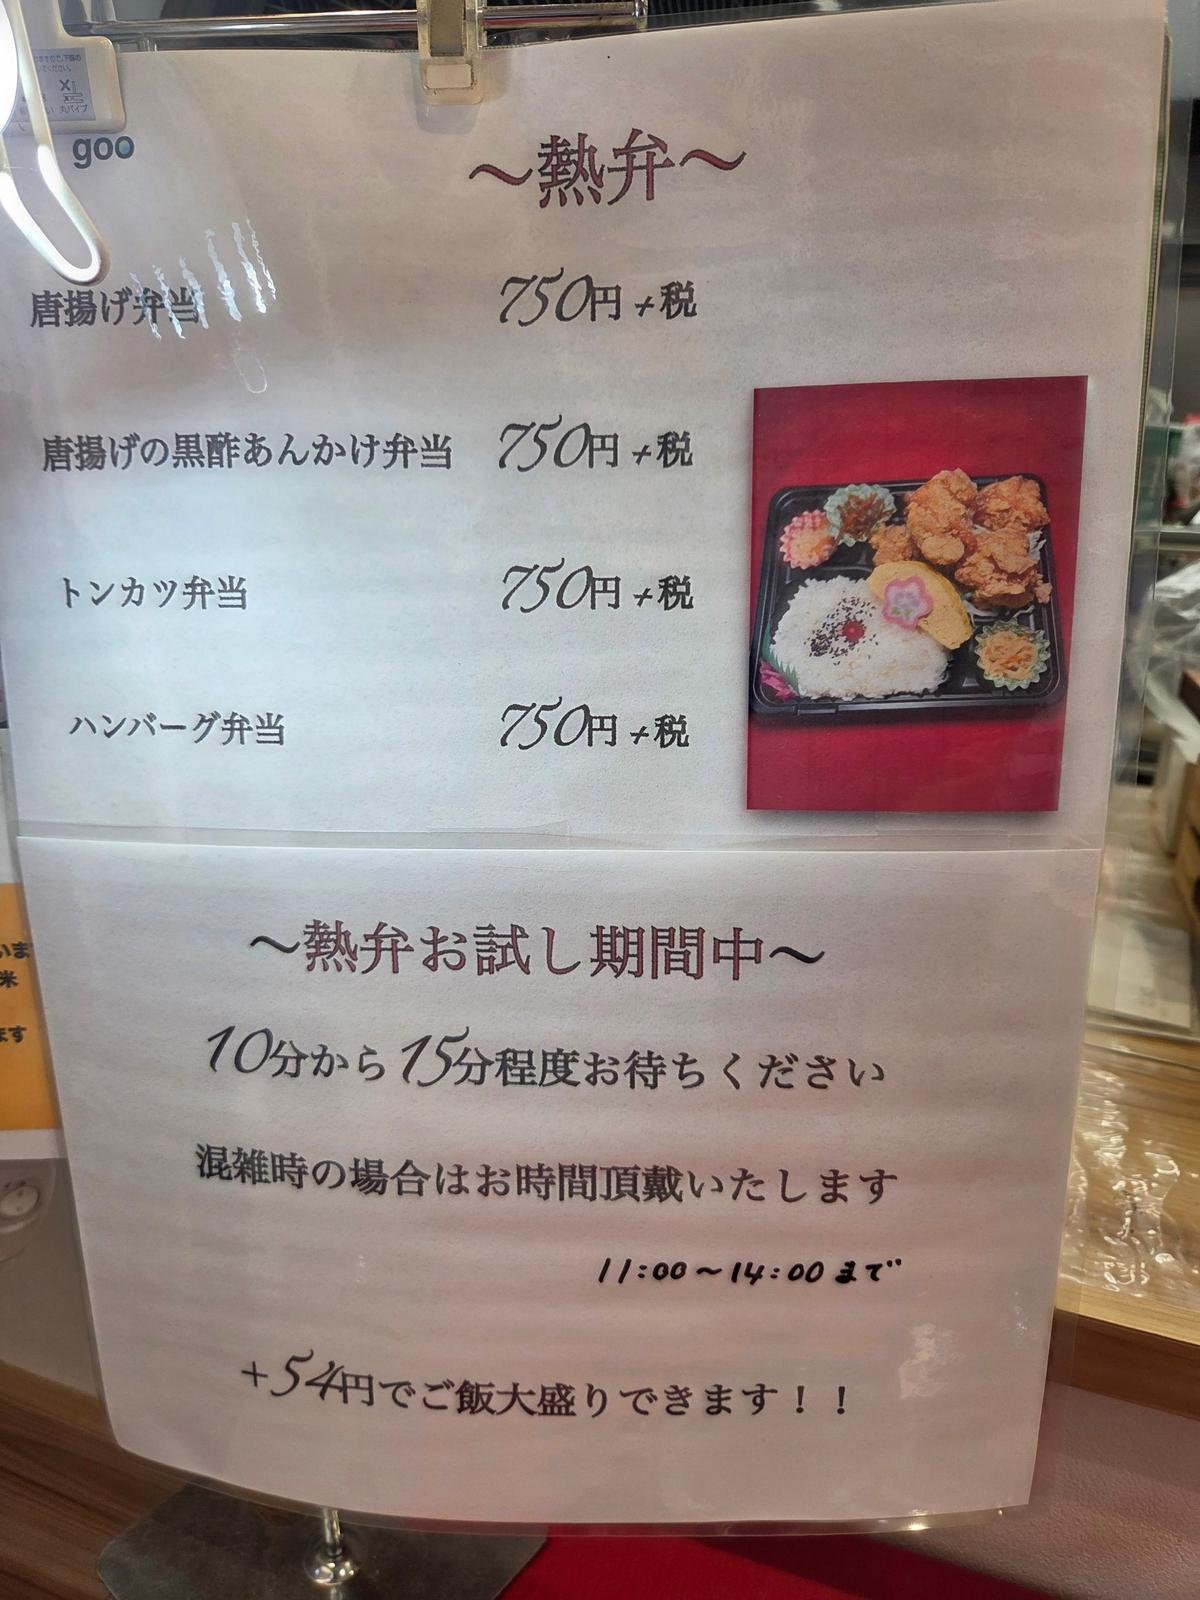 goo
～熱弁～
唐揚げ弁当 750円+税
唐揚げの黒酢あんかけ弁当 750円+税
トンカツ弁当 750円+税
ハンバーグ弁当 750円+税
～熱弁お試し期間中～
10分から15分程度お待ちください
混雑時の場合はお時間頂戴いたします
11:00～14:00まで
+54円でご飯大盛りできます！！
いま
米
ます
丸パイプ